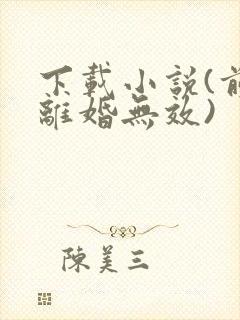 下載小説(前
離婚無效)
陳美三